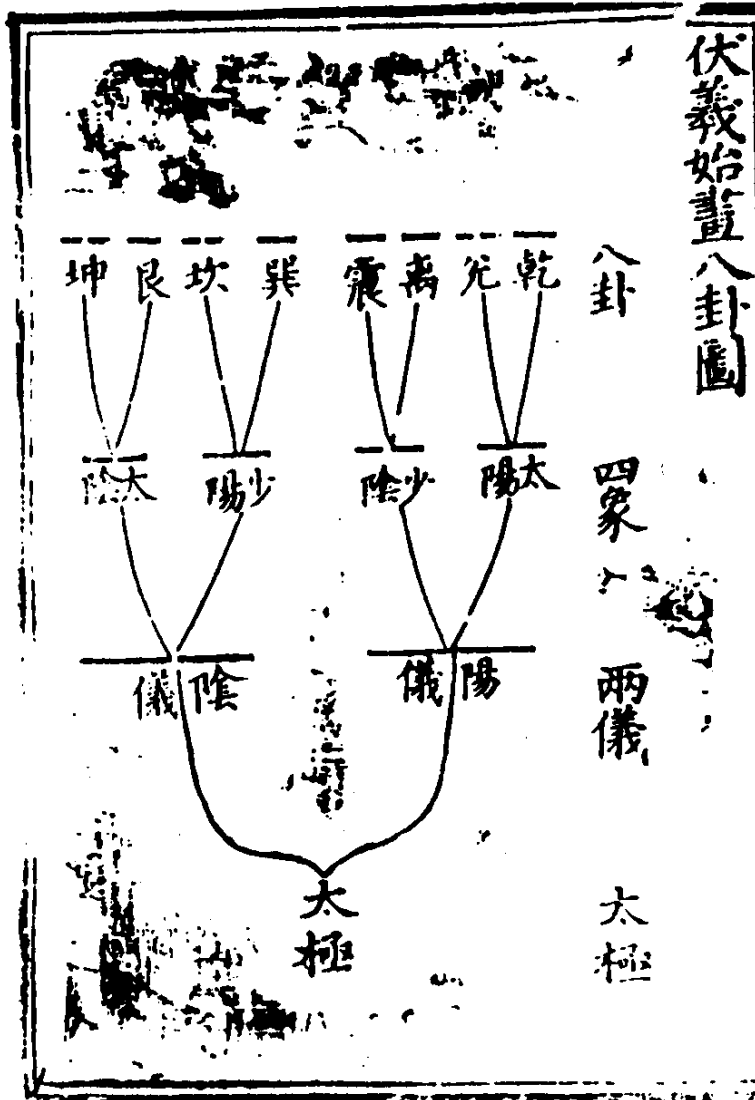 伏羲始畫八卦圖
八卦
乾
兌
離
震
巽
坎
艮
坤
四象
太陽
少陰
少陽
太陰
兩儀
陽儀
陰儀
太極
太極